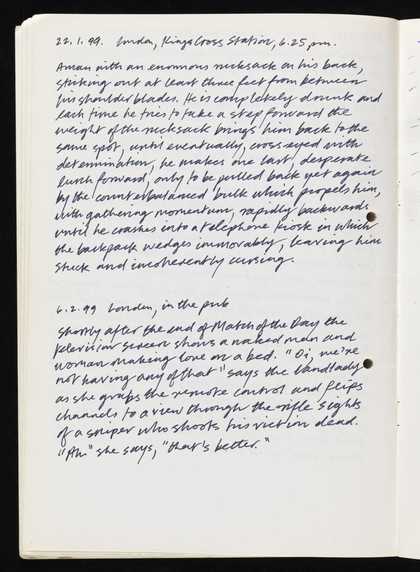 22.1.99. London, Kings Cross Station, 6.25pm.
A man with an enormous rucksack on his back,
sticking out at least three feet from between
his shoulder blades. He is completely drunk and
each time he tries to take a step forward the
weight of the rucksack brings him back to the
same spot, until eventually, cross-eyed with
determination, he makes one last, desperate
lurch forward, only to be pulled back yet again
by the counterbalanced bulk which propels him,
with gathering momentum, rapidly backwards
until he crashes into a telephone kiosk in which
the backpack wedges immovably, leaving him
stuck and incoherently cursing.
6.2.99 London, in the pub
Shortly after the end of Match of the Day the
television screen shows a naked man and
woman making love on a bed. "Oi, we're
not having any of that" says the landlady
as she grabs the remote control and flips
channels to a view through the rifle sights
of a sniper who shoots his victim dead.
"Ah" she says, "that's better."